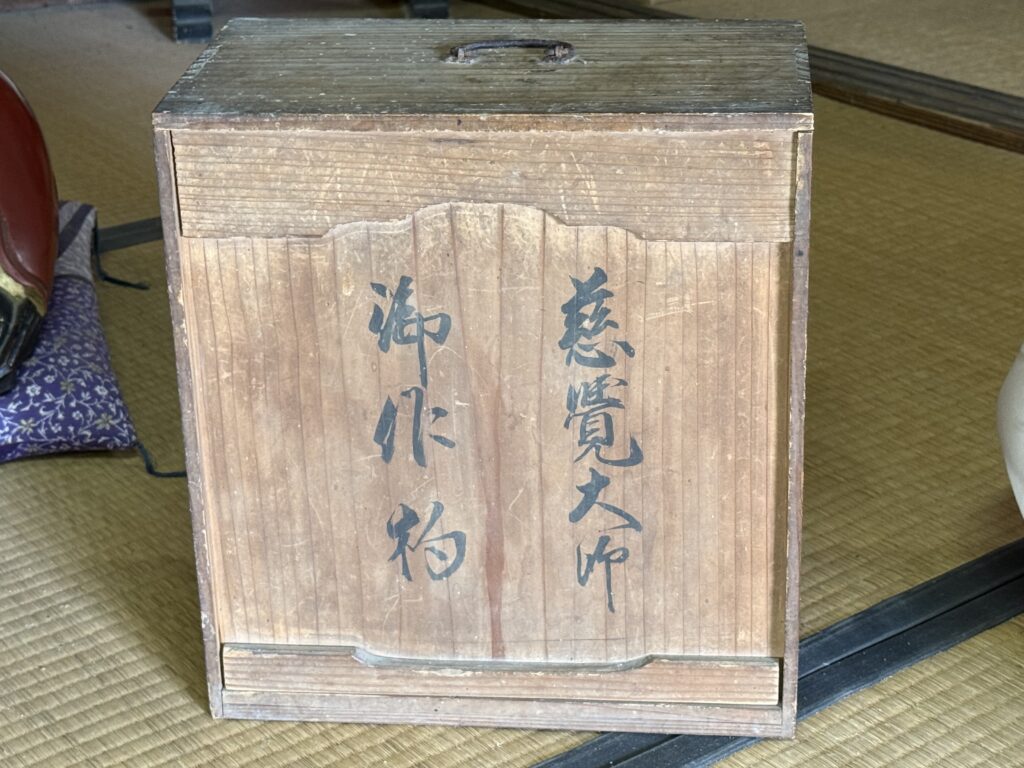 慈覺大師
御作物